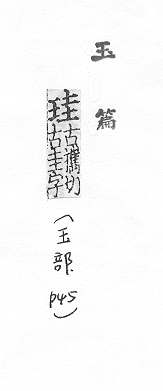 玉篇
珪古攜切古圭字
(玉部 P45)